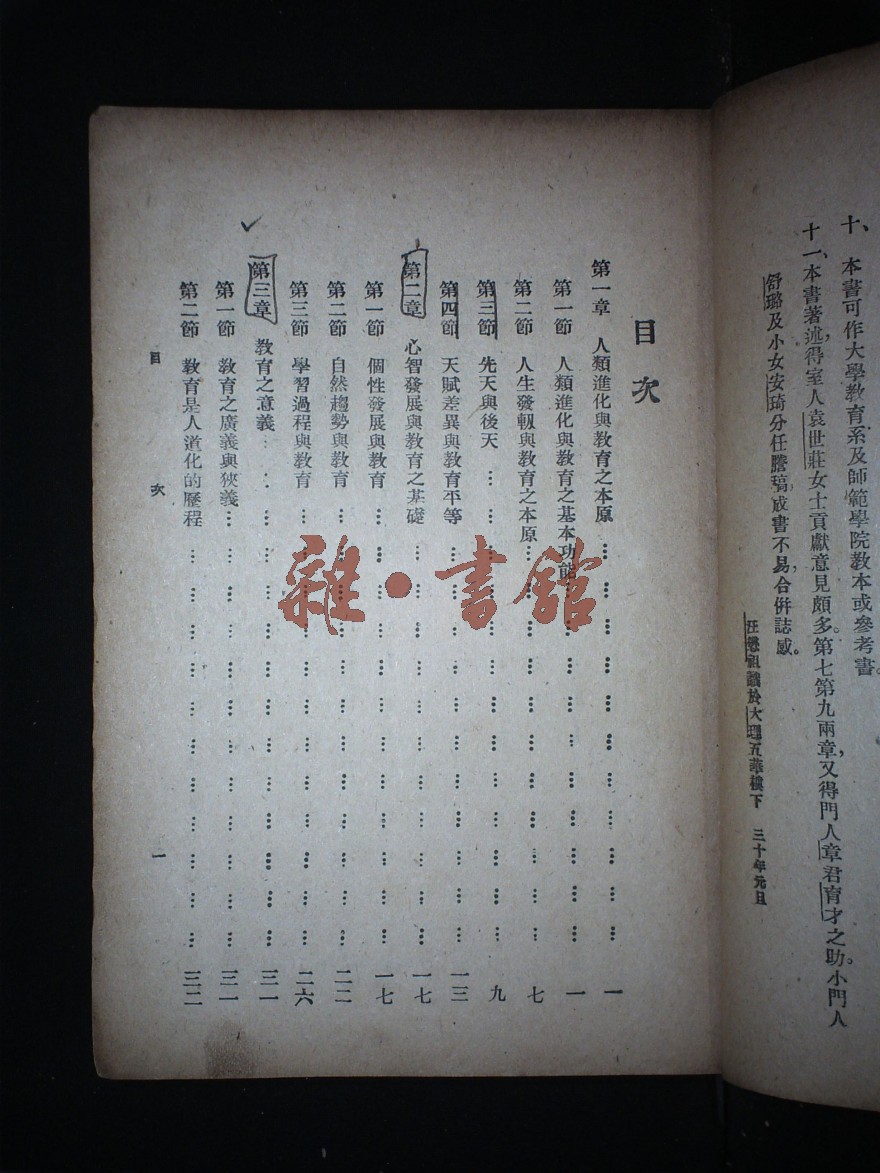 十、本書可作大學教育系及師範學院教本或參考書。
十一、本書著述，得室人袁世莊女士貢獻意見頗多。第七第九兩章，又得門人章君育才之助。小門人
舒璐及小女安琦分任謄稿，成書不易，合併誌感。
汪懋祖識於大理五華樓下 三十年元旦
目次
第一章 人類進化與教育之本原………一
第一節 人類進化與教育之基本功能………一
第二節 人生發軔與教育之本原………七
第三節 先天與後天………九
第四節 天賦差異與教育平等………一三
第二章 心智發展與教育之基礎………一七
第一節 個性發展與教育………一七
第二節 自然趨勢與教育………二二
第三節 學習過程與教育………二六
第三章 教育之意義………三一
第一節 教育之廣義與狹義………三一
第二節 教育是人道化的歷程………三二
目次 一
雜·書館